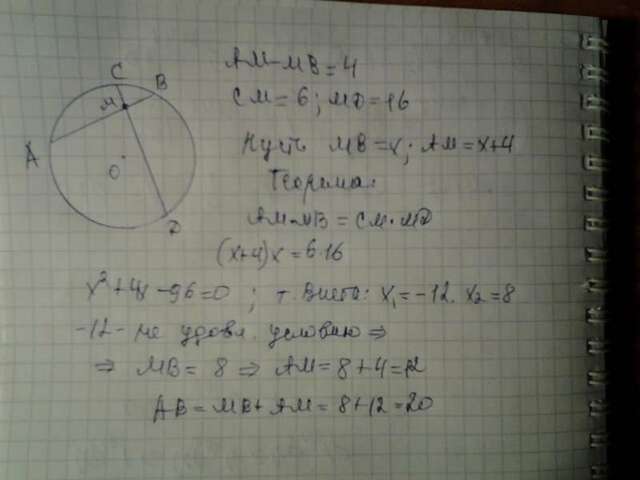 C
B
M
A
O
D
AM-MB=4
CM=6; MD=16
Пусть MB=x; AM=x+4
Теорема:
AM·MB=CM·MD
(x+4)x=6·16
x²+4x-96=0; т. Виета: x₁=-12. x₂=8
-12 - не удовл. условию ⇒
⇒ MB= 8 ⇒ AM=8+4=12
AB=MB+AM=8+12=20